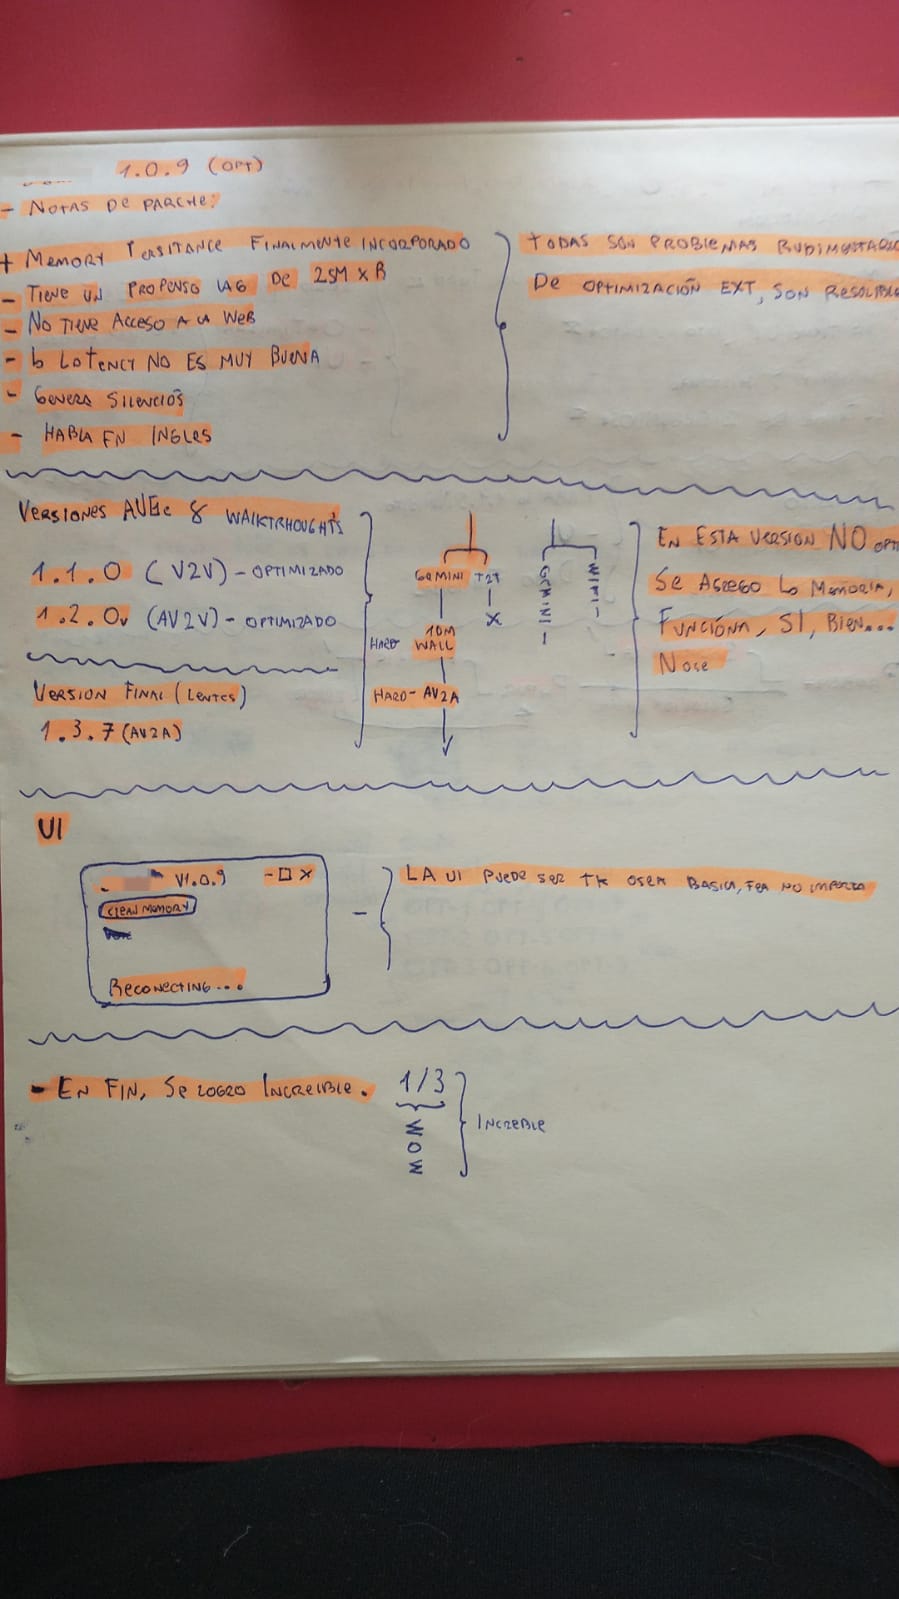 1.0.9 (OPT)
- NOTAS DE PARCHE:
+ MEMORY PERSITANCE FINALMENTE INCORPORADO
- TIENE UN PROPENSO LAG DE
- NO TIENE ACCESO A LA WEB
- LATENCY NO ES MUY BUENA
- GENERA SILENCIOS
- HABLA EN INGLES
TODAS SON PROBLEMAS
DE OPTIMIZACIÓN EXT, SON
VERSIONES & WALKTRHOUGHTS
1.1.0 (V2V) - OPTIMIZADO
1.2.0v (AV2V) - OPTIMIZADO
VERSION FINAL (LENTES)
1.3.7 (AV2A)
GEMINI T2T
X
HARD 10M
WALL
HARD - AV2A
GEMINI -
WIFI -
EN ESTA VERSION NO
SE AGREGO LA MEMORIA,
FUNCIONA, SI, BIEN...
NOSE
UI
V1.0.9 - □ X
CLEAN MEMORY
RECONECTING...
LA UI PUEDE SER TK OSEA BASICA, FEA NO IMPORTA
- EN FIN, SE LOGRO INCREIBLE. 1/3
WOW
INCREBLE